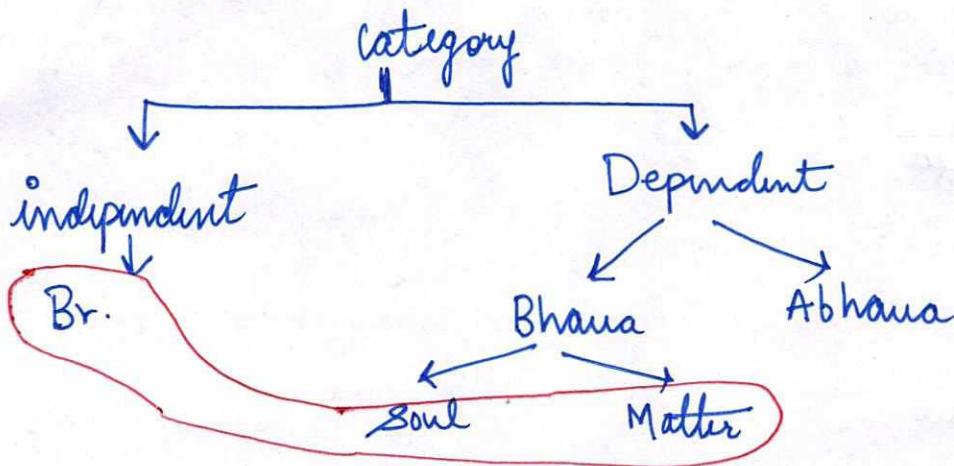 Category
independent Dependent
Br. Bhava Abhava
Soul Matter